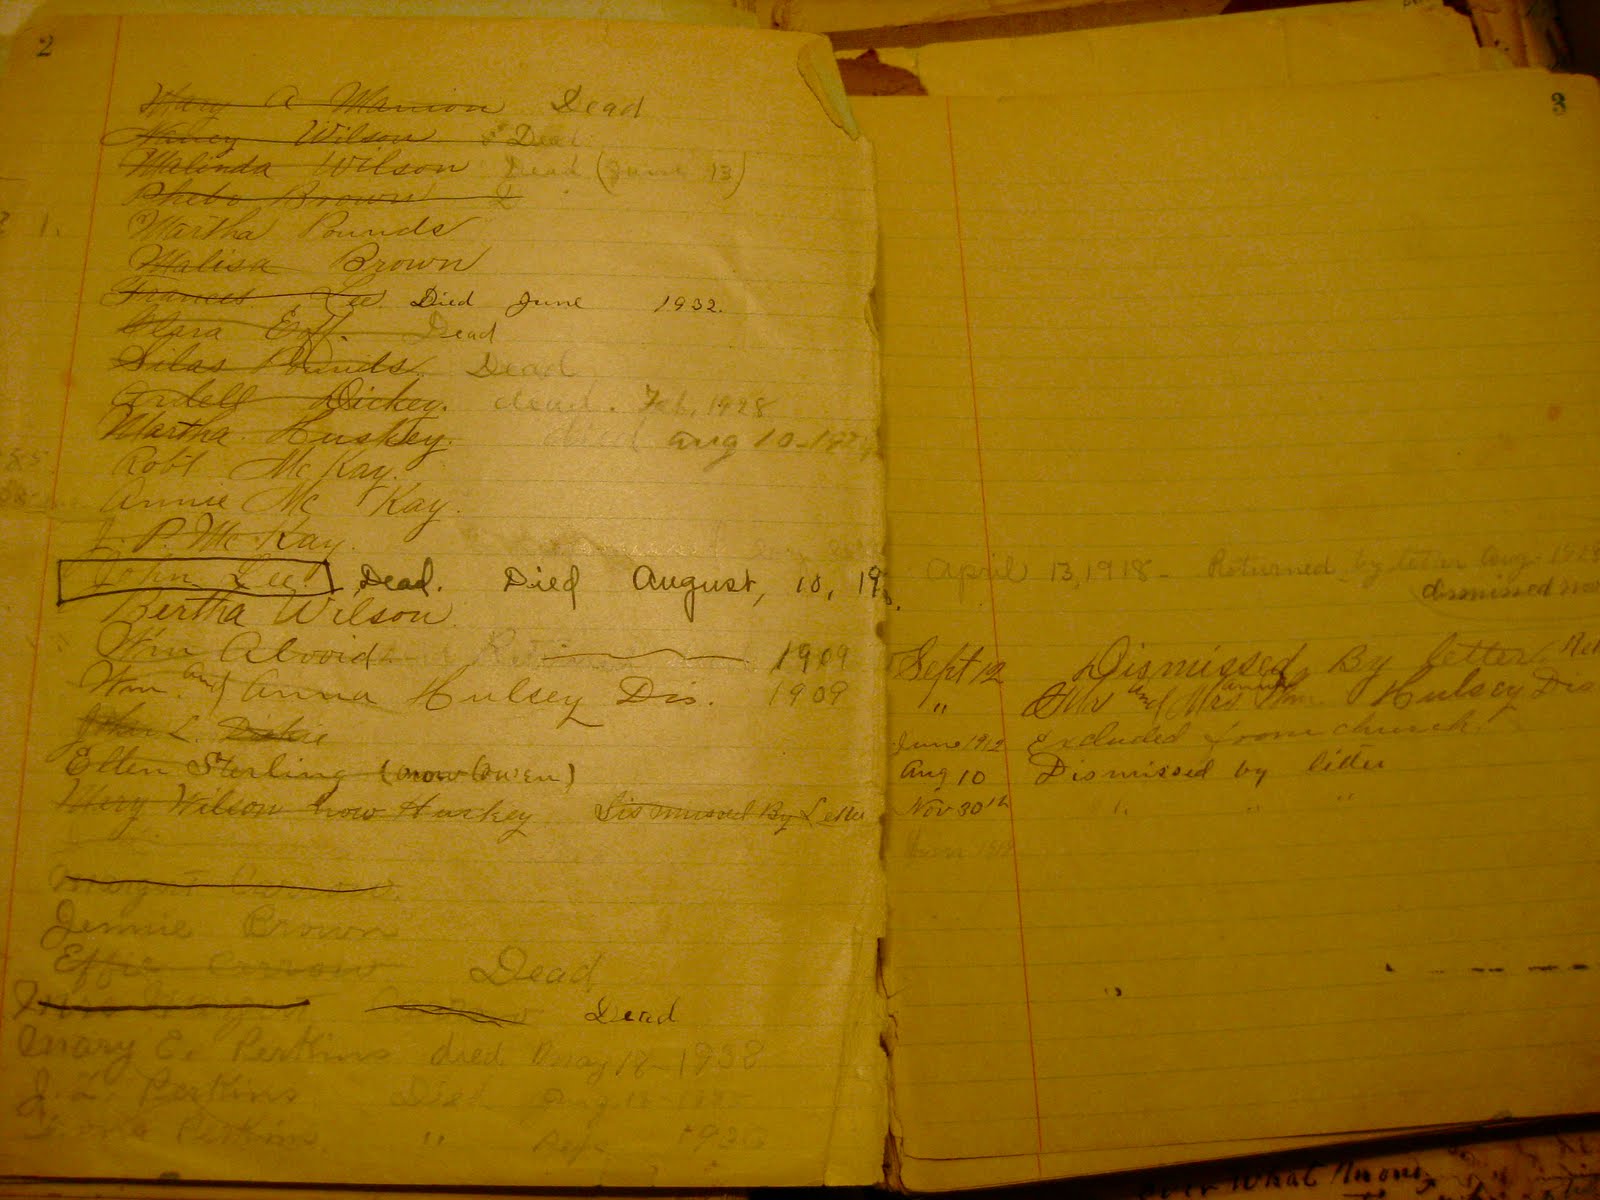 2
Mary A Manion Dead
Nancy Wilson Dead
Malinda Wilson Dead (June 13)
Phebe Brown D
Martha Pounds
Malisa Brown
Frances Lee Died June 1932.
Clara Eoff. Dead
Silas Pounds. Dead
Ardell Dickey. dead. Feb, 1928
Martha Huskey. died Aug 10-
Robt McKay.
Annie McKay.
J. P. McKay.
John Lee. Dead. Died August, 10, 19
Bertha Wilson.
Wm Alvoid 1909
Wm. and Anna Hulsey Dis. 1909
John L. Dickie
Ellen Sterling (now Owen)
Mary Wilson now Huskey Dismissed By Letter
Jennie Brown
Effie Carrow Dead
Dead
Mary E. Perkins died May 18-1938
Perkins Died Aug.
Perkins " 1936
3
April 13, 1918- Returned by letter Aug-
dismissed
Sept 12 Dismissed By letter
" Mr and Mrs Wm. Hulsey Dis
June 1912 Excluded from church.
Aug 10 Dismissed by letter
Nov 30th " " "
over What